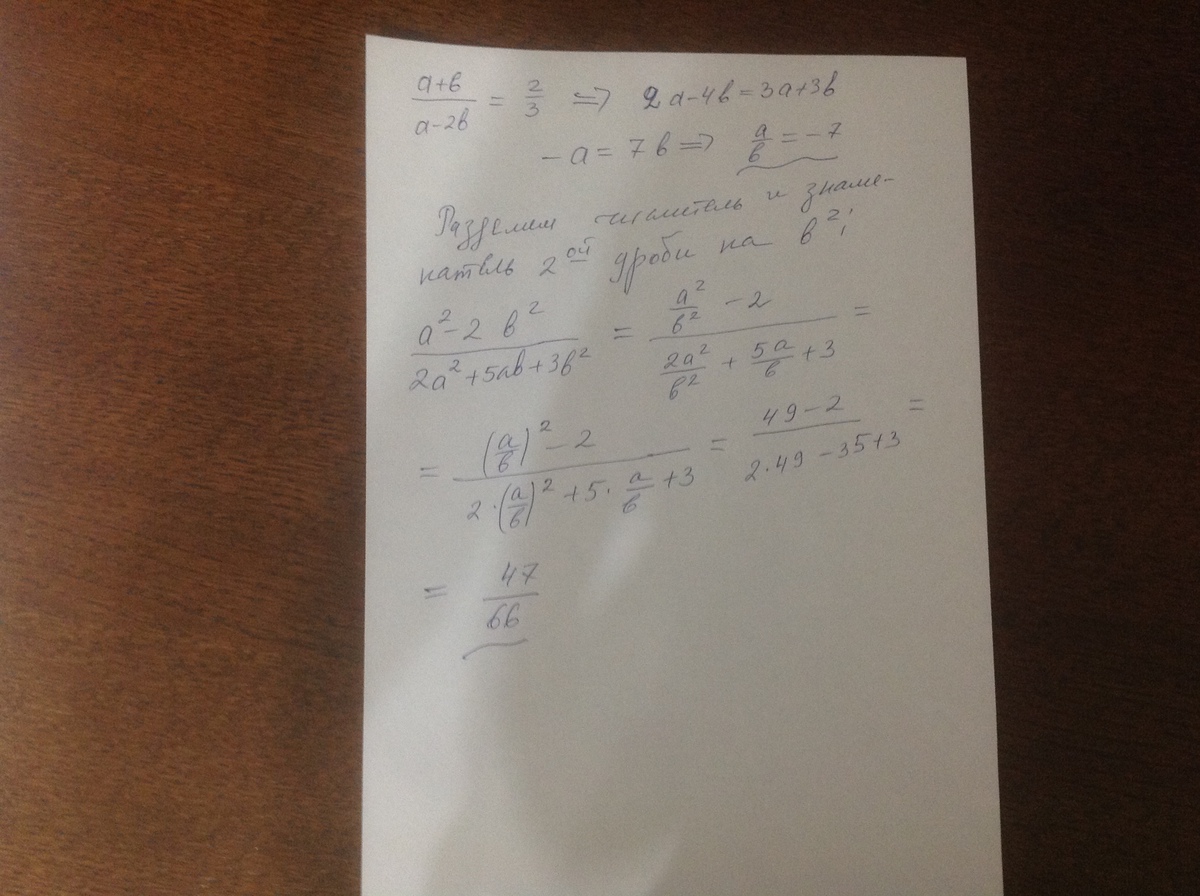 (a+b)/(a-2b) = 2/3 ⇒ 2a-4b=3a+3b
-a = 7b ⇒ a/b = -7
Разделим числитель и знаме-
натель 2ой дроби на b²:
(a²-2b²)/(2a²+5ab+3b²) = (a²/b² - 2)/(2a²/b² + 5a/b + 3) =
= ((a/b)² - 2)/(2·(a/b)² + 5·a/b + 3) = (49-2)/(2·49-35+3) =
= 47/66